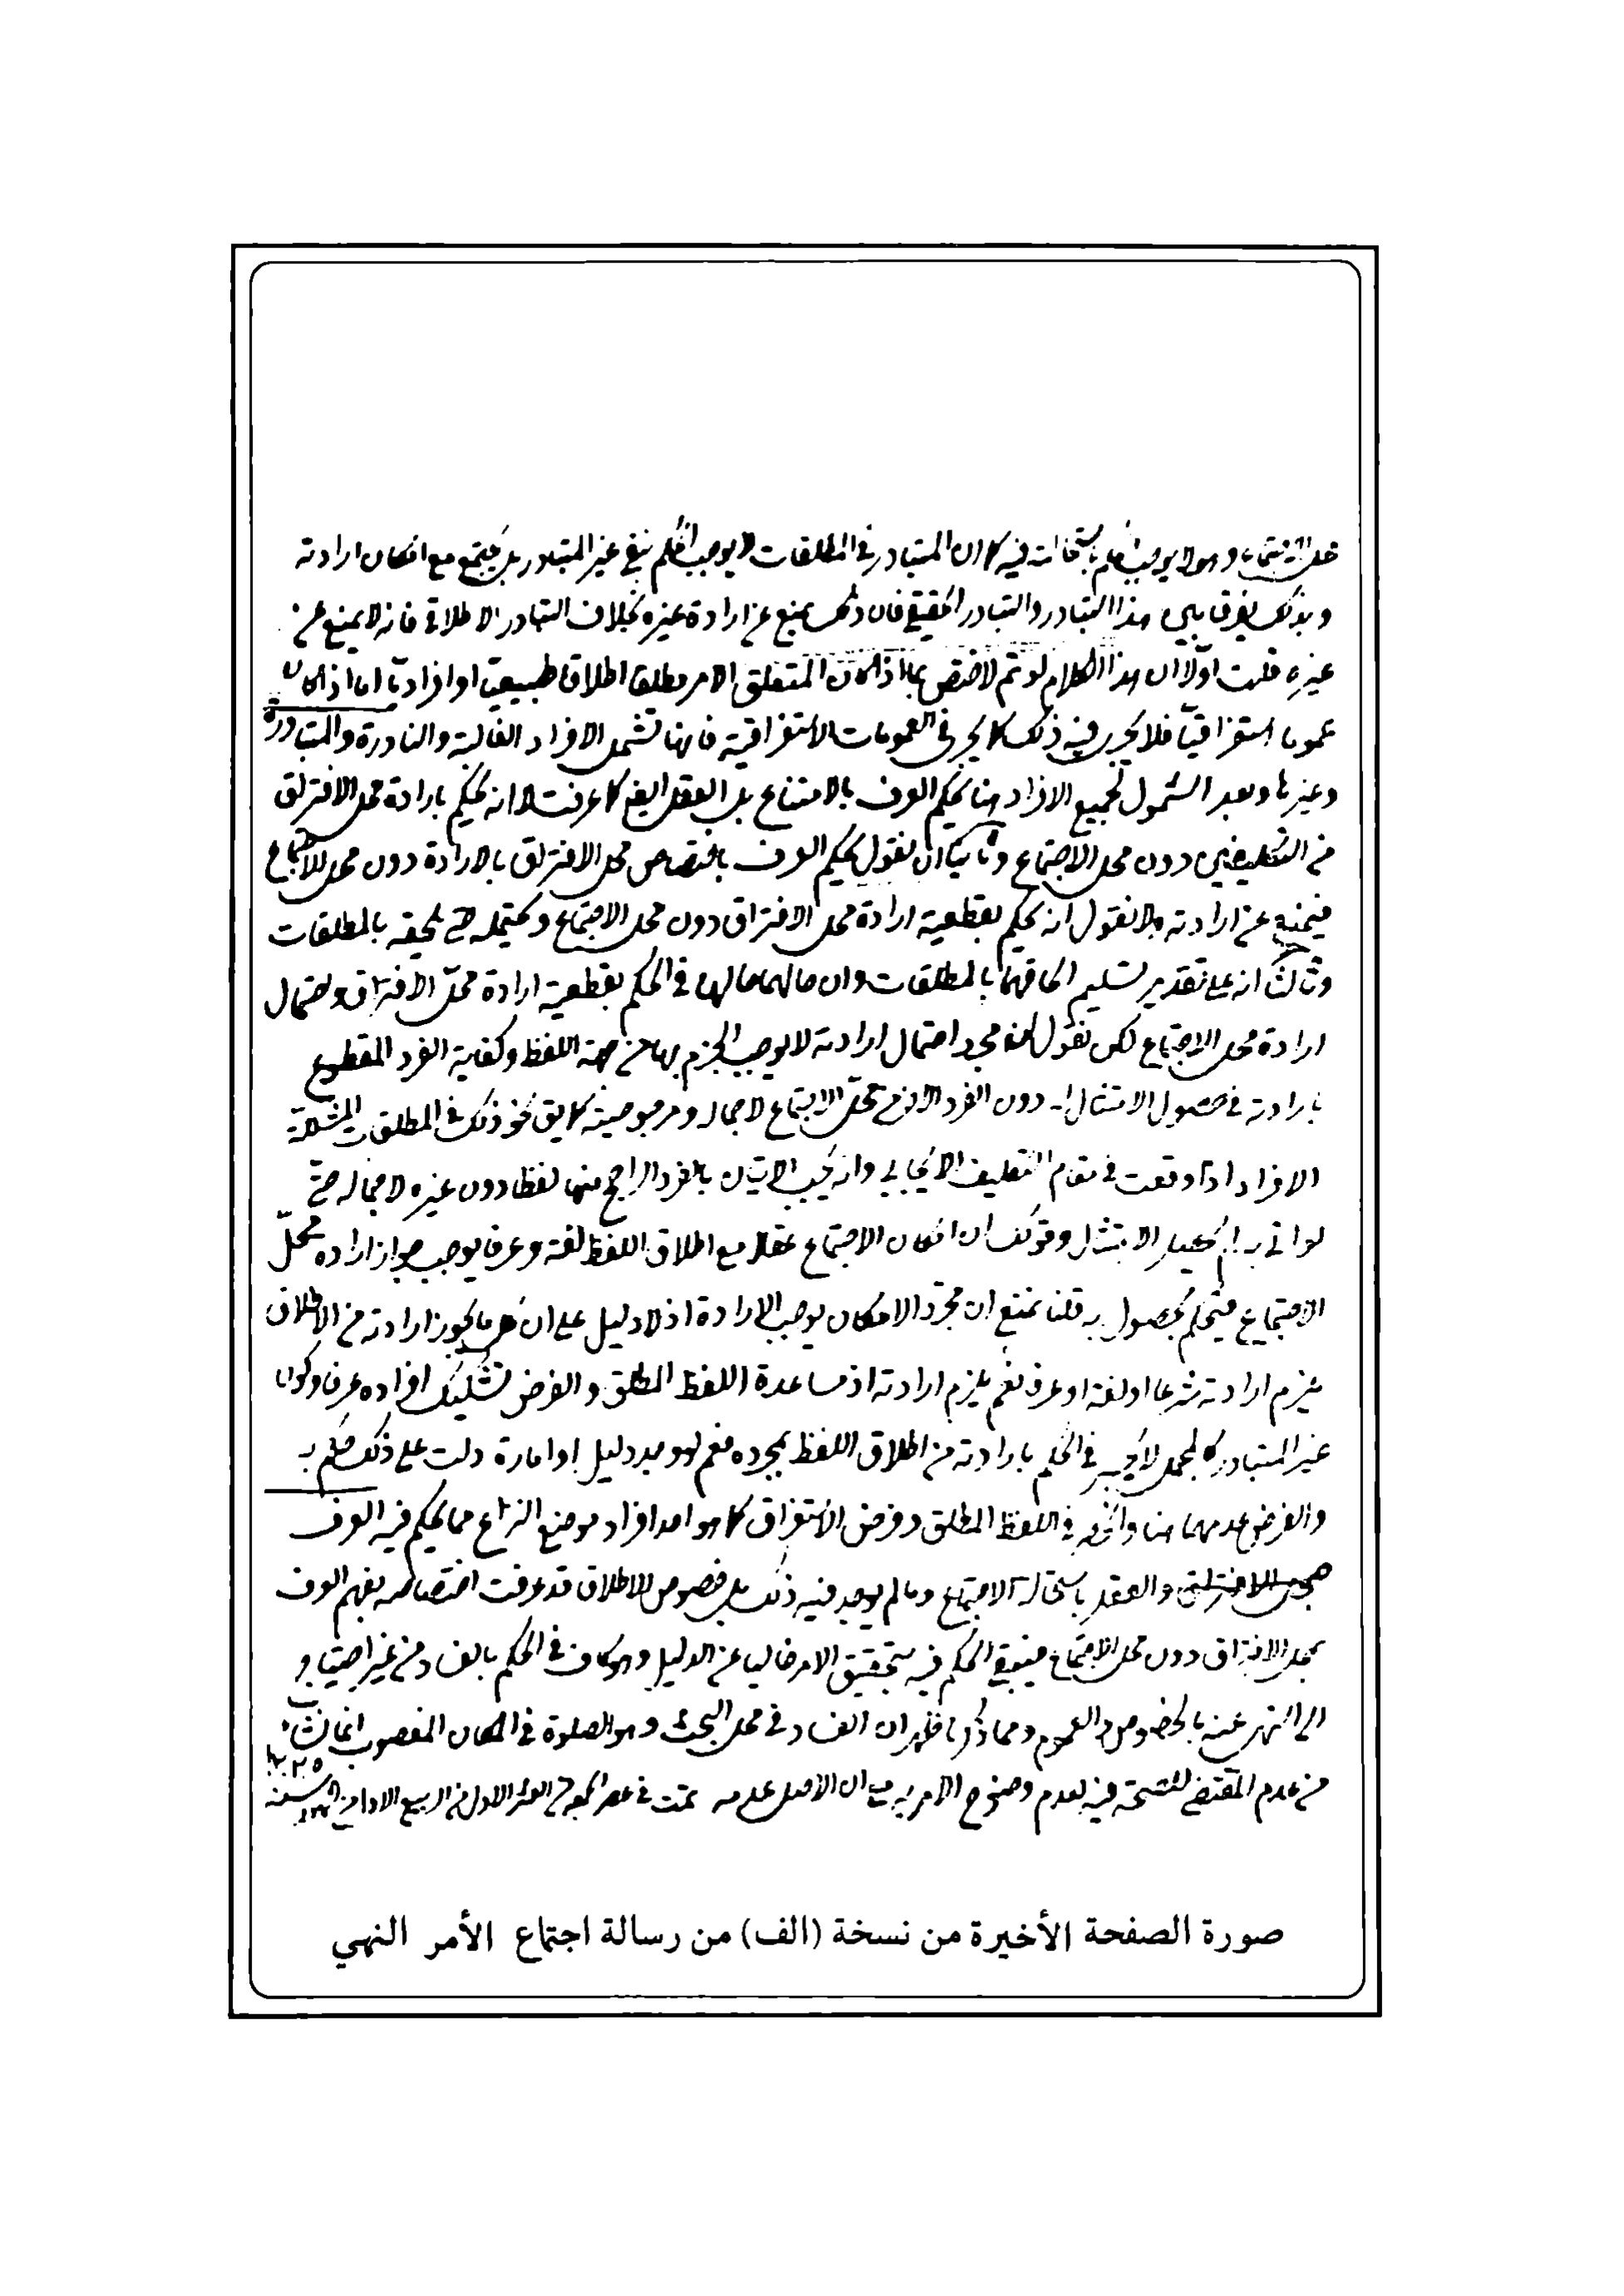 وهو لا يوجب الحكم باستحالته فيه كما ان المتبادر في المطلقات لا يوجب الحكم بنفي غير المتبادر بل يجتمع مع امكان ارادته
وبذلك يفرق بين هذا التبادر والتبادر الحقيقي فان ذلك يمنع عن ارادة غيره بخلاف التبادر الاطلاقي فانه لا يمنع عن
غيره قلت اولا ان هذا الكلام لو تم لاختص بما اذا كان المتعلق الامر مطلقا اطلاقا طبيعيا او افراديا اما اذا كان
عموما استغراقيا فلا يجري فيه ذلك كما لا يجري في العمومات الاستغراقية فانها تشمل الافراد الغالبة والنادرة والمتبادرة
وغيرها وبعد الشمول لجميع الافراد هنا يحكم العرف بالامتناع بل العقل ايضا كما عرفت لا انه يحكم بارادة محل الافتراق
من التكليفين دون محل الاجتماع وثانيا ان نقول يحكم العرف باختصاص محل الافتراق بالارادة دون محل الاجتماع
فيمنع عن ارادته ولا نقول انه يحكم بقطعية ارادة محل الافتراق دون محل الاجتماع ويحتمله حتى يلحقه بالمطلقات
وثالثا انه على تقدير تسليم الحاقهما بالمطلقات وان حالهما حالها في الحكم بقطعية ارادة محل الافتراق واحتمال
ارادة محل الاجتماع لكن نقول مجرد احتمال ارادته لا يوجب الجزم بها من جهة اللفظ وكفاية الفرد المقطوع
بارادته في حصول الامتثال دون الفرد محل الاجتماع لاجماله ومرجوحيته كما يق نحو ذلك في المطلقات المشككة
الافراد اذا وقعت في مقام التكليف الايجابي وانه يجب الاتيان بالفرد الراجح منها لفظا دون غيره لاجماله حتى
لو اتى به لم يحصل الامتثال وقولك ان امكان الاجتماع عقلا مع اطلاق اللفظ لغة وعرفا يوجب جواز ارادة محل
الاجتماع فيحكم بحصول به قلنا نمنع ان مجرد الامكان يوجب الارادة اذ لا دليل على ان ما يجوز ارادته من الاطلاق
يلزم ارادته شرعا او لغة او عرفا نعم يلزم ارادته اذ مساعدة اللفظ المطلق والفرض تشكيك افراده عرفا وكون
غير المتبادر كالمجمل في الحكم بارادته من اطلاق اللفظ بمجرده نعم لو وجد دليل او امارة دلت على ذلك حكم به
والفرض عدمهما هنا في اللفظ المطلق وفرض الاستغراق كما هو احد افراد موضع النزاع مما يحكم فيه العرف
والعقل باستحالة الاجتماع وما لم يوجد فيه ذلك بل خصوص الاطلاق قد عرفت اختصاصه بفهم العرف
بمحل الافتراق دون محل الاجتماع فيبقى الحكم فيه بتحقيق الامر خاليا عن الدليل وهو كاف في الحكم بالفساد من غير احتياج
الى النهي عنه بالخصوص او العموم ومما ذكرنا ظهر ان الفساد في محل البحث وهو الصلوة في المكان المغصوب انما نشأ
من عدم المقتضي للصحة فيه لعدم وضوح الامر به مع ان الاصل عدمه تمت في عصر الجمعة من العشر الاول من الربيع سنة
صورة الصفحة الأخيرة من نسخة (الف) من رسالة اجتماع الأمر النهي